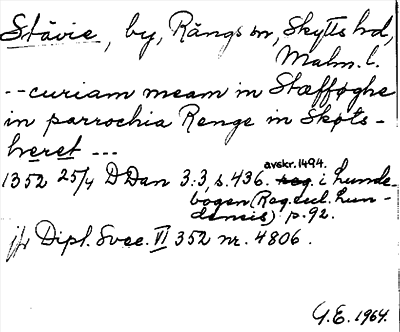 Stävie, by, Rängs sn, Skytts hd,
Malm. l.
-- curiam meam in Stæfføghe
in parrochia Renge in Skøts-
hæret ---
1352 25/4 D Dan 3:3, s. 436. avskr. 1494. reg. i Lunde-
bogen (Reg. eccl. Lun-
densis) p. 92.
jfr Dipl. Svec. VI 352 nr. 4806.
G.E. 1964.